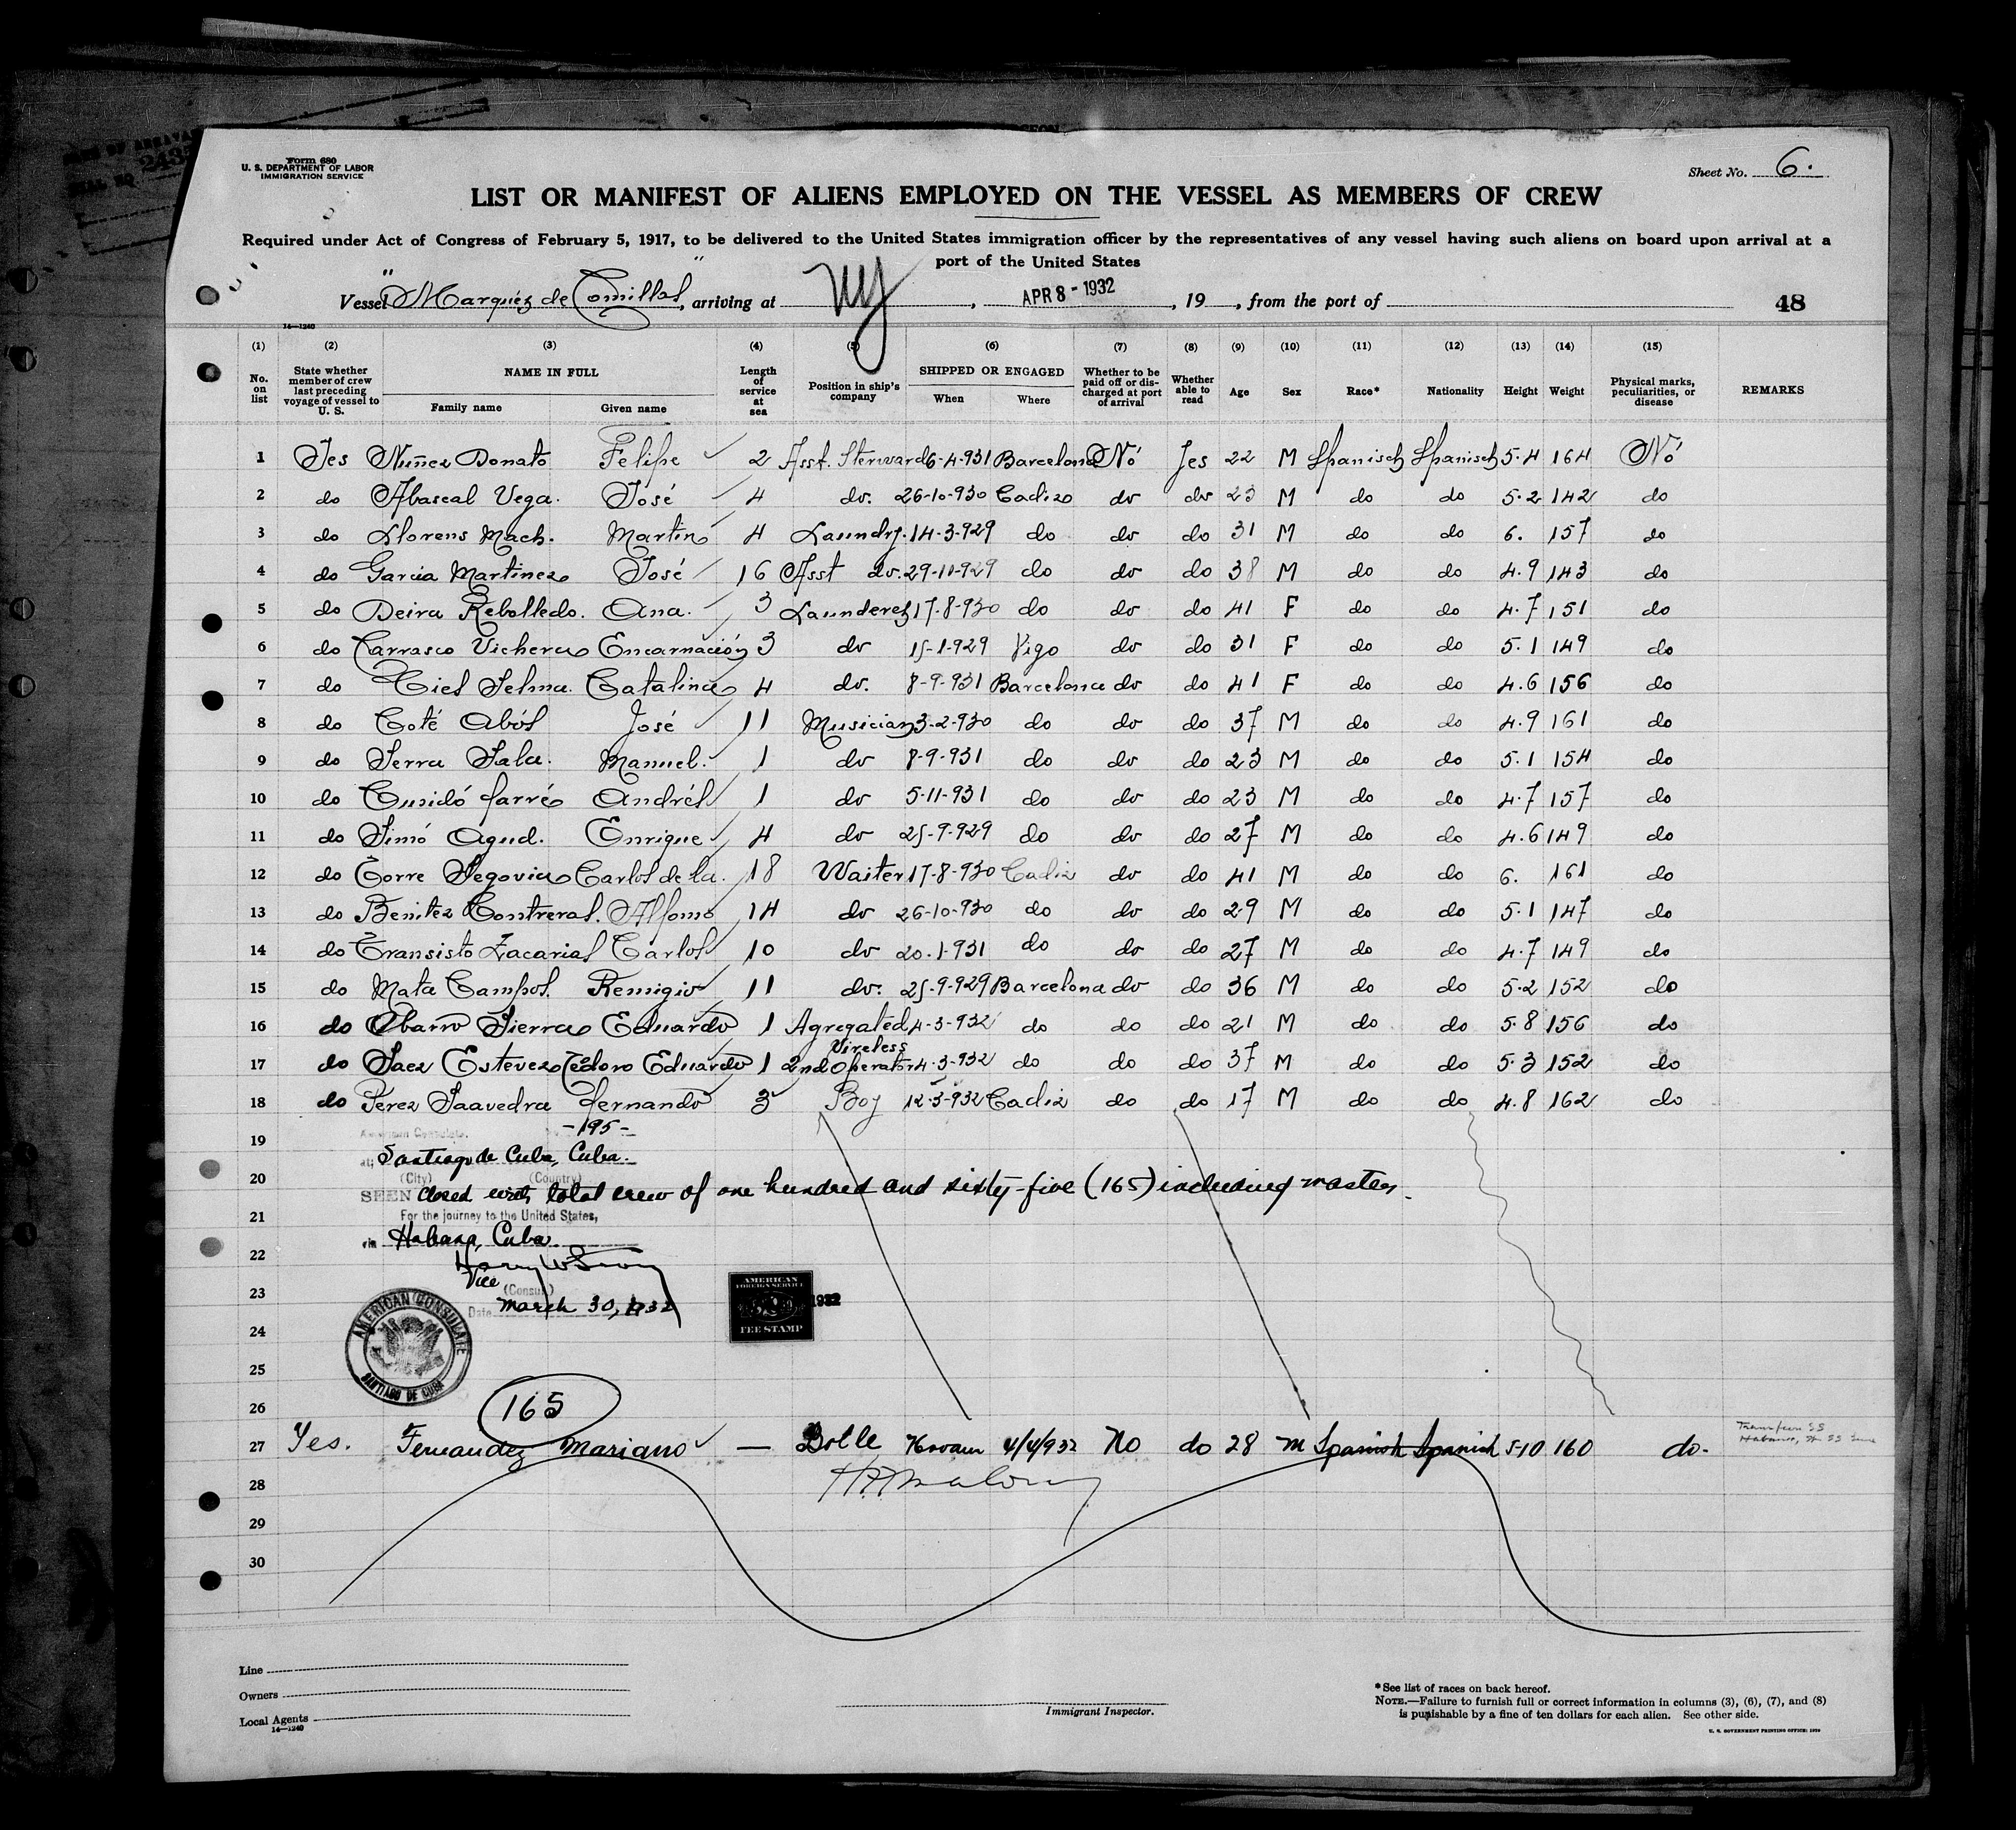 Form 680
U. S. DEPARTMENT OF LABOR
IMMIGRATION SERVICE
Sheet No. 6.
LIST OR MANIFEST OF ALIENS EMPLOYED ON THE VESSEL AS MEMBERS OF CREW
Required under Act of Congress of February 5, 1917, to be delivered to the United States immigration officer by the representatives of any vessel having such aliens on board upon arrival at a
port of the United States
Vessel "Marqués de Comillas", arriving at NY, APR 8 - 1932, 19 , from the port of
48
14—1240
(1) (2) (3) (4) (5) (6) (7) (8) (9) (10) (11) (12) (13) (14) (15)
No. on list State whether member of crew last preceding voyage of vessel to U. S. NAME IN FULL Family name Given name Length of service at sea Position in ship's company SHIPPED OR ENGAGED When Where Whether to be paid off or discharged at port of arrival Whether able to read Age Sex Race* Nationality Height Weight Physical marks, peculiarities, or disease REMARKS
1 Yes Nuñez Donato Felipe 2 Asst. Sterward 6-4-931 Barcelona No Yes 22 M Spanisch Spanisch 5.4 164 No
2 do Abascal Vega. José 4 do. 26-10-930 Cadiz do do 23 M do do 5.2 142 do
3 do Llorens Mach. Martin 4 Laundry. 14-3-929 do do do 31 M do do 6. 157 do
4 do Garcia Martinez José 16 Asst do. 29-11-929 do do do 38 M do do 4.9 143 do
5 do Deira Rebolledo. Ana. 3 Launderes 17-8-930 do do do 41 F do do 4.7 151 do
6 do Carrasco Vichera Encarnación 3 do 15-1-929 Vigo do do 31 F do do 5.1 149 do
7 do Ciel Selma. Catalina 4 do. 8-9-931 Barcelona do do 41 F do do 4.6 156 do
8 do Coté Abós José 11 Musician 3-2-930 do do do 37 M do do 4.9 161 do
9 do Serra Sala. Manuel. 1 do 8-9-931 do do do 23 M do do 5.1 154 do
10 do Cusidó farré Andrés 1 do 5-11-931 do do do 23 M do do 4.7 157 do
11 do Simó Agud. Enrique 4 do 25-9-929 do do do 27 M do do 4.6 149 do
12 do Torre Segovia Carlos de la. 18 Waiter 17-8-930 Cadiz do do 41 M do do 6. 161 do
13 do Benitez Contreras. Alfonso 14 do 26-10-930 do do do 29 M do do 5.1 147 do
14 do Transisto Zacarias Carlos 10 do 20-1-931 do do do 27 M do do 4.7 149 do
15 do Mata Campos. Remigio 11 do. 25-9-929 Barcelona do do 36 M do do 5.2 152 do
16 do Obarro Sierra Eduardo 1 Agregated 4-3-932 do do do 21 M do do 5.8 156 do
17 do Saez Estevez Teodoro Eduardo 1 2nd Wireless Operator 4-3-932 do do do 37 M do do 5.3 152 do
18 do Perez Saavedra fernando 3 Boy 12-3-932 Cadiz do do 17 M do do 4.8 162 do
19 American Consulate. -195-
at; Santiago de Cuba, Cuba.
(City) (Country)
20 SEEN Closed with total crew of one hundred and sixty-five (165) including master.
21 For the journey to the United States,
22 via Habana, Cuba.
Vice
(Consul)
23 Date March 30, 1932
AMERICAN FOREIGN SERVICE
FEE STAMP
1932
24
AMERICAN CONSULATE
SANTIAGO DE CUBA
25
26 165
27 Yes. Fernandez Mariano — Havana 4/4/932 No do 28 M Spanish Spanish 5-10 160 do.
28
29
30
Line
Owners
Local Agents
14—1240
Immigrant Inspector.
*See list of races on back hereof.
NOTE.—Failure to furnish full or correct information in columns (3), (6), (7), and (8)
is punishable by a fine of ten dollars for each alien. See other side.
U. S. GOVERNMENT PRINTING OFFICE: 1929